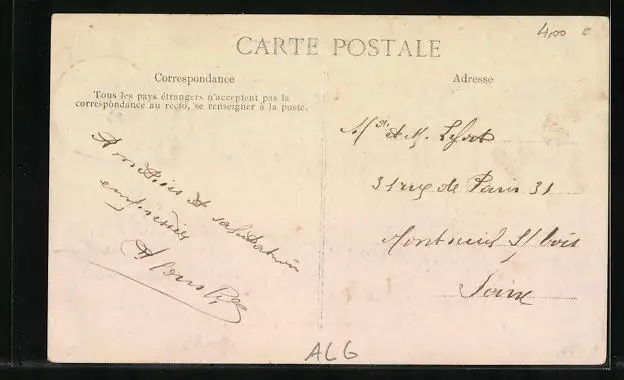 4,00 e
CARTE POSTALE
Correspondance
Adresse
Tous les pays étrangers n'acceptent pas la
correspondance au recto, se renseigner à la poste.
et salutations
empressées
Me et M. Lefort
31 rue de Paris 31
Montreuil s/ bois
Seine
ALG